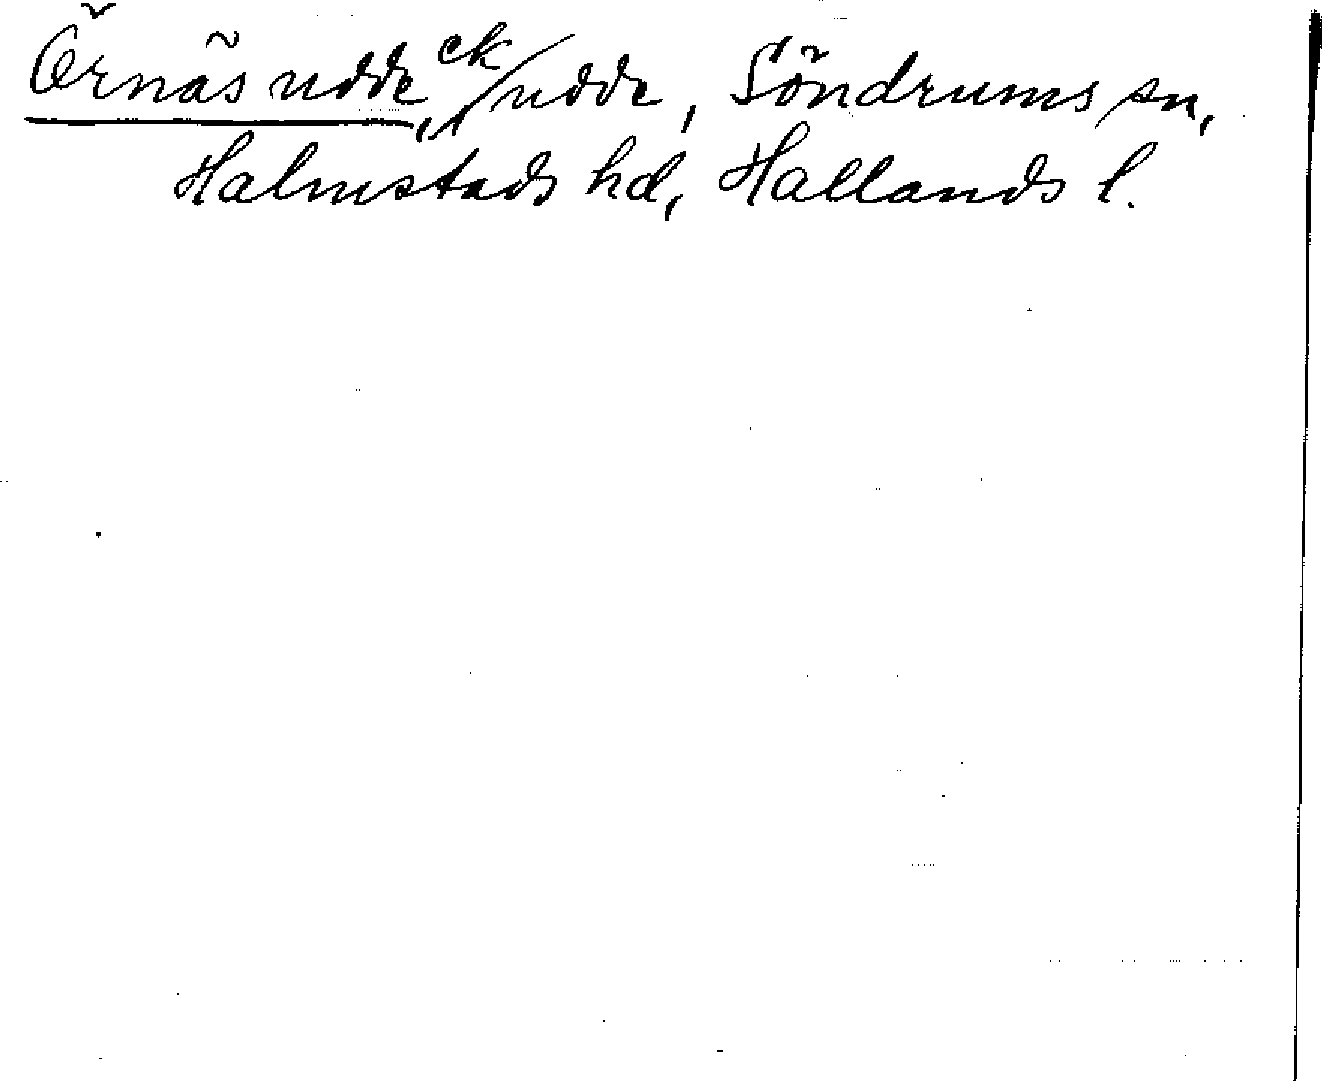 Örnäs udde, ek/udde, Söndrums sn,
Halmstads hd, Hallands l.